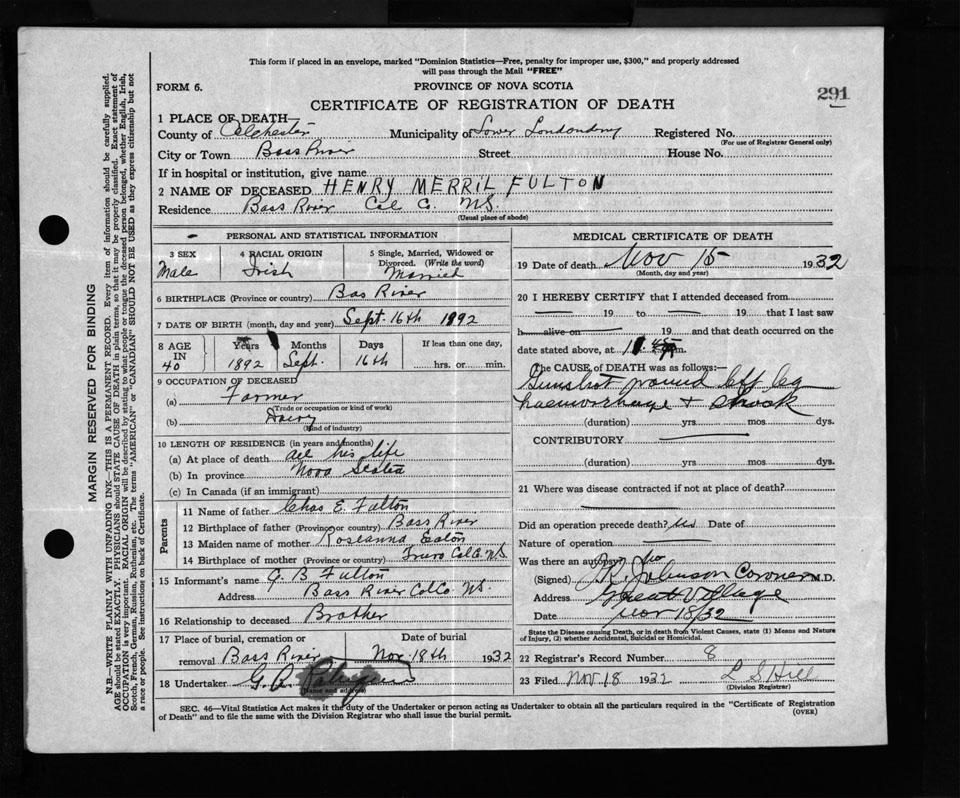 This form if placed in an envelope, marked "Dominion Statistics—Free, penalty for improper use, $300," and properly addressed
will pass through the Mail "FREE"
FORM 6.
PROVINCE OF NOVA SCOTIA
291
CERTIFICATE OF REGISTRATION OF DEATH
1 PLACE OF DEATH—
County of Colchester Municipality of Lower Londonderry Registered No.
(For use of Registrar General only)
City or Town Bass River Street House No.
If in hospital or institution, give name
2 NAME OF DECEASED HENRY MERRIL FULTON
Residence Bass River Col Co. N.S.
(Usual place of abode)
PERSONAL AND STATISTICAL INFORMATION
3 SEX 4 RACIAL ORIGIN 5 Single, Married, Widowed or
Divorced. (Write the word)
Male Irish Married
6 BIRTHPLACE (Province or country) Bas River
7 DATE OF BIRTH (month, day and year) Sept. 16th 1892
8 AGE Years Months Days If less than one day,
IN
40 1892 Sept. 16th hrs. or min.
9 OCCUPATION OF DECEASED
(a) Farmer
(Trade or occupation or kind of work)
(b) Dairy
(Kind of industry)
10 LENGTH OF RESIDENCE (in years and months)
(a) At place of death all his life
(b) In province Nova Scotia
(c) In Canada (if an immigrant)
Parents
11 Name of father Chas E. Fulton
12 Birthplace of father (Province or country) Bass River
13 Maiden name of mother Roseanna Eaton
14 Birthplace of mother (Province or country) Truro Col Co. N.S.
15 Informant's name G. B Fulton
Address Bass River Col Co. N.S.
16 Relationship to deceased Brother
17 Place of burial, cremation or Date of burial
removal Bass River Nov. 18th 1932
18 Undertaker G. A.
(Name and address)
MEDICAL CERTIFICATE OF DEATH
19 Date of death Nov 15 1932
(Month, day and year)
20 I HEREBY CERTIFY that I attended deceased from
19 to 19 that I last saw
h alive on 19 and that death occurred on the
date stated above, at m.
The CAUSE of DEATH was as follows:—
Gunshot wound left leg
haemorrhage + shock
(duration) yrs mos dys.
CONTRIBUTORY
(duration) yrs mos dys.
21 Where was disease contracted if not at place of death?
Did an operation precede death? Date of
Nature of operation
Was there an autopsy? No
(Signed) Johnson Coroner M.D.
Address Great Village
Date Nov 18/32
State the Disease causing Death, or in death from Violent Causes, state (1) Means and Nature
of Injury, (2) whether Accidental, Suicidal or Homicidal.
22 Registrar's Record Number 8
23 Filed NOV 18 1932 L S Hill
(Division Registrar)
SEC. 46—Vital Statistics Act makes it the duty of the Undertaker or person acting as Undertaker to obtain all the particulars required in the "Certificate of Registration
of Death" and to file the same with the Division Registrar who shall issue the burial permit.
(OVER)
MARGIN RESERVED FOR BINDING
N.B.—WRITE PLAINLY WITH UNFADING INK—THIS IS A PERMANENT RECORD. Every item of information should be carefully supplied.
AGE should be stated EXACTLY. PHYSICIANS should STATE CAUSE OF DEATH in plain terms, so that it may be properly classified. Exact statement of
OCCUPATION is very important. RACIAL ORIGIN will be described by stating to what people or tongue the deceased person belonged, whether English, Irish,
Scotch, French, German, Russian, Ruthenian, etc. The terms "AMERICAN" or "CANADIAN" SHOULD NOT BE USED as they express citizenship but not
a race or people. See instructions on back of Certificate.